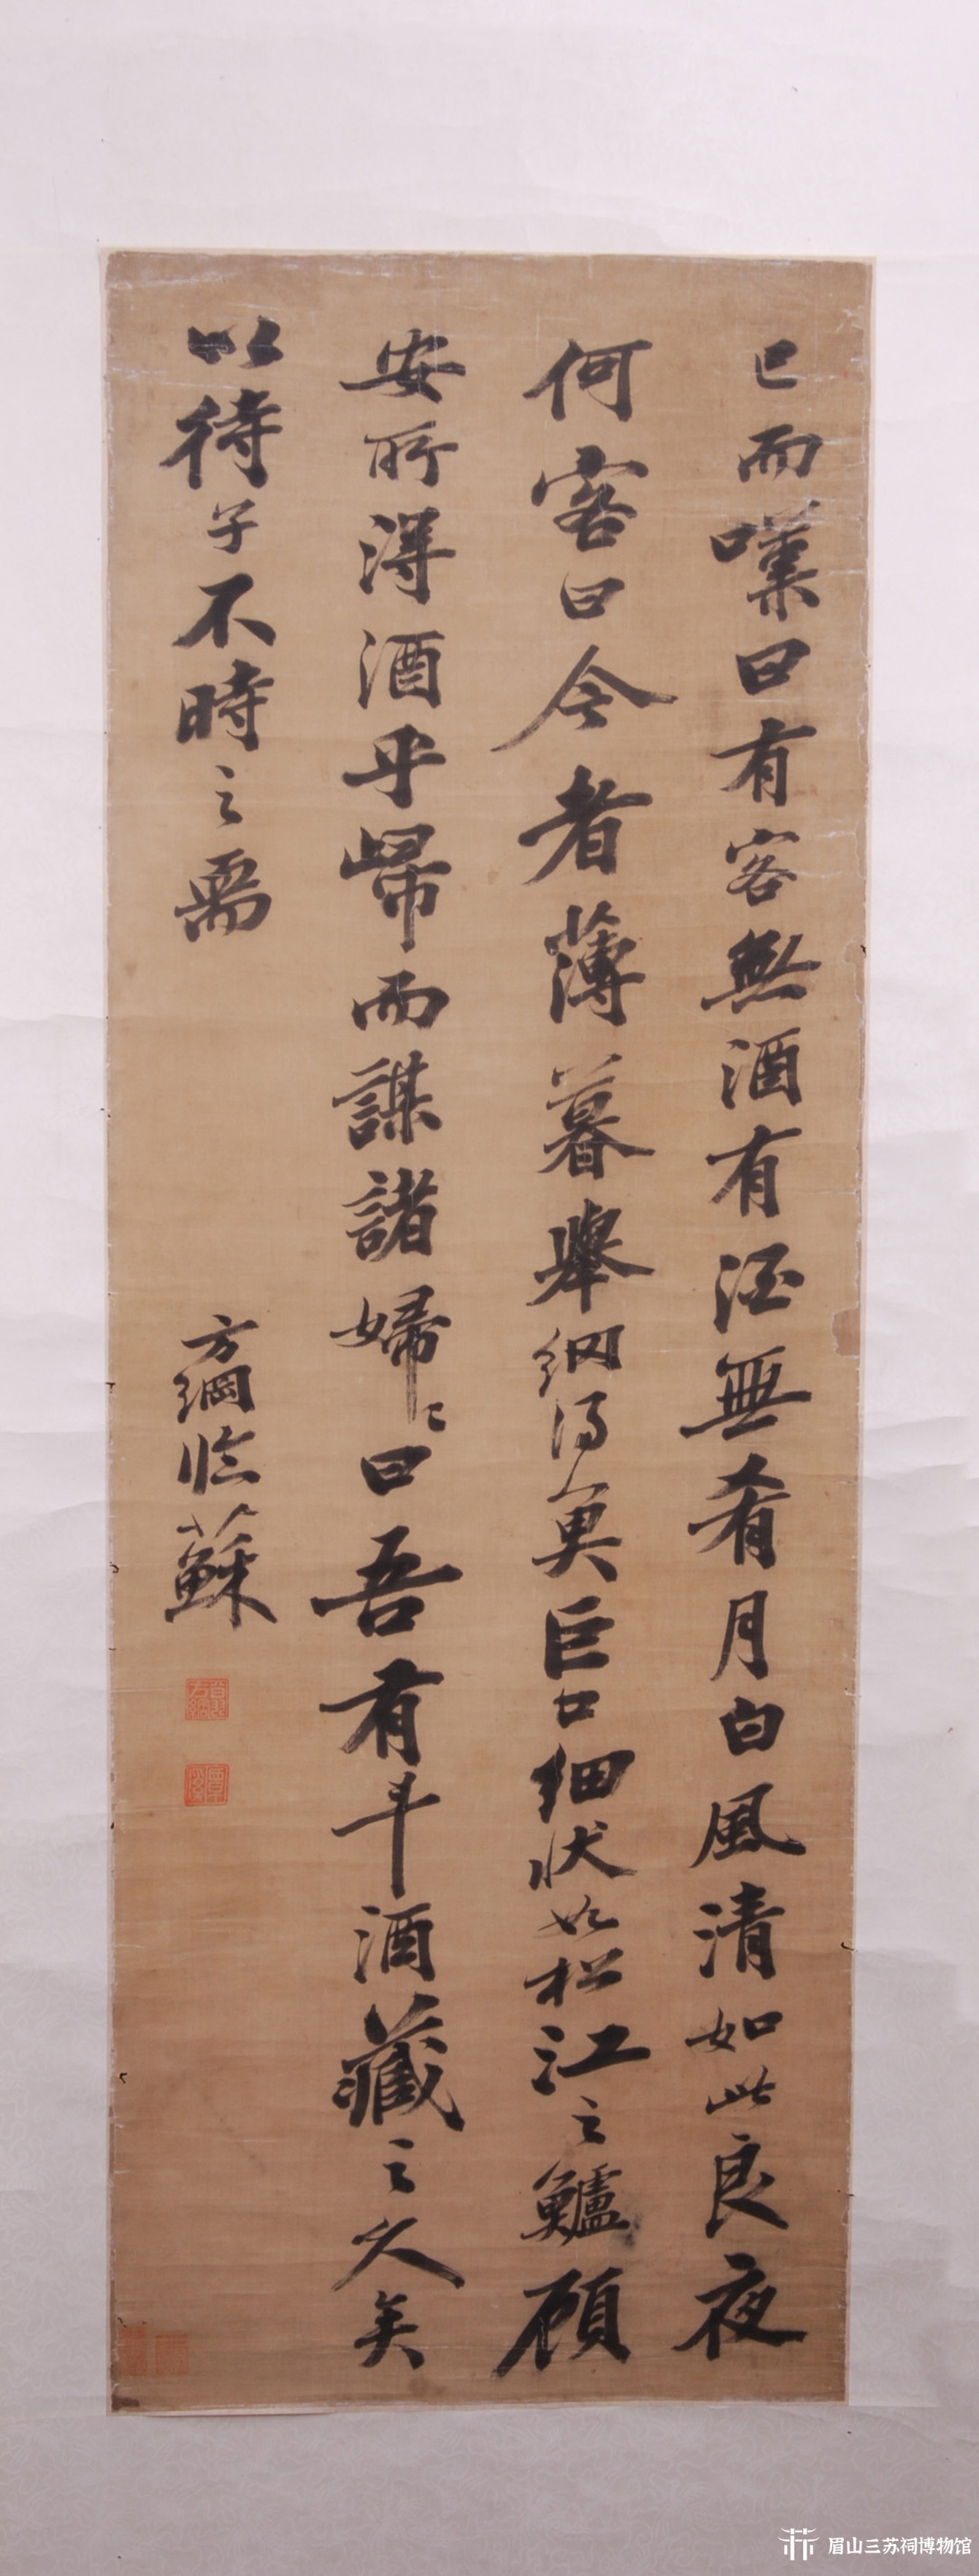 已而嘆曰有客無酒有酒無肴月白風清如此良夜
何客曰今者薄暮舉網得魚巨口細狀如松江之鱸顧
安所得酒乎歸而謀諸婦〻曰吾有斗酒藏之久矣
以待子不時之需
方綱臨蘇
眉山三苏祠博物馆